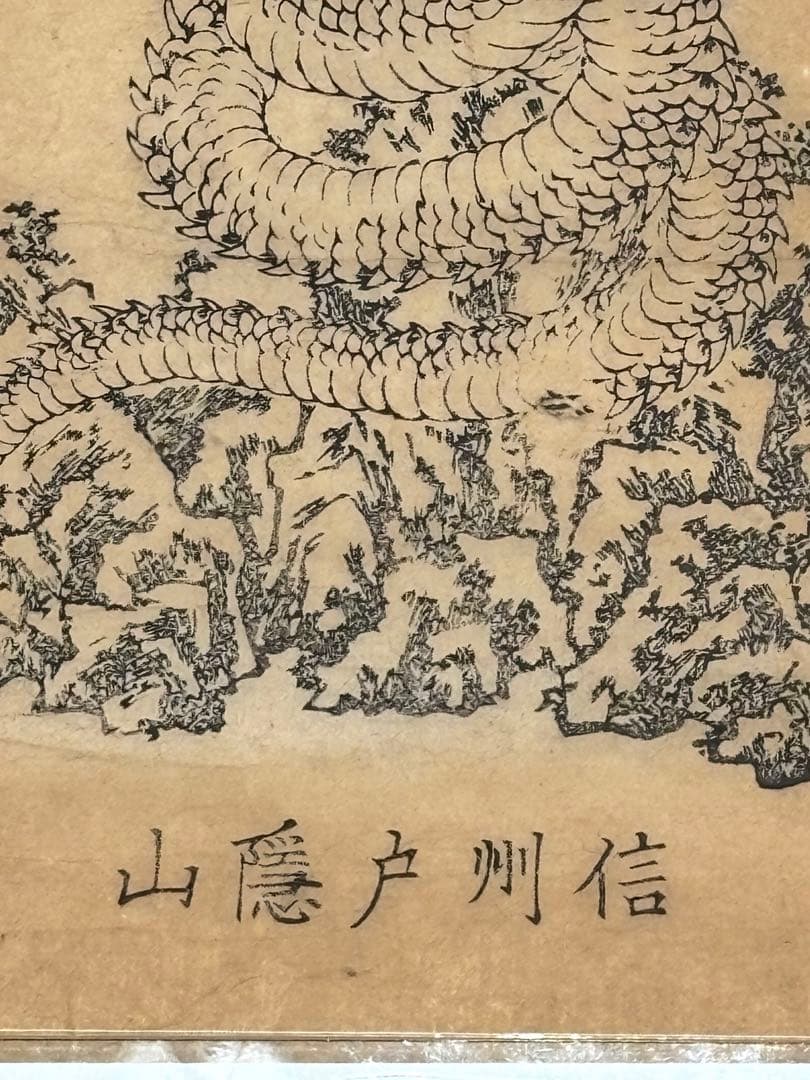 信州户隱山